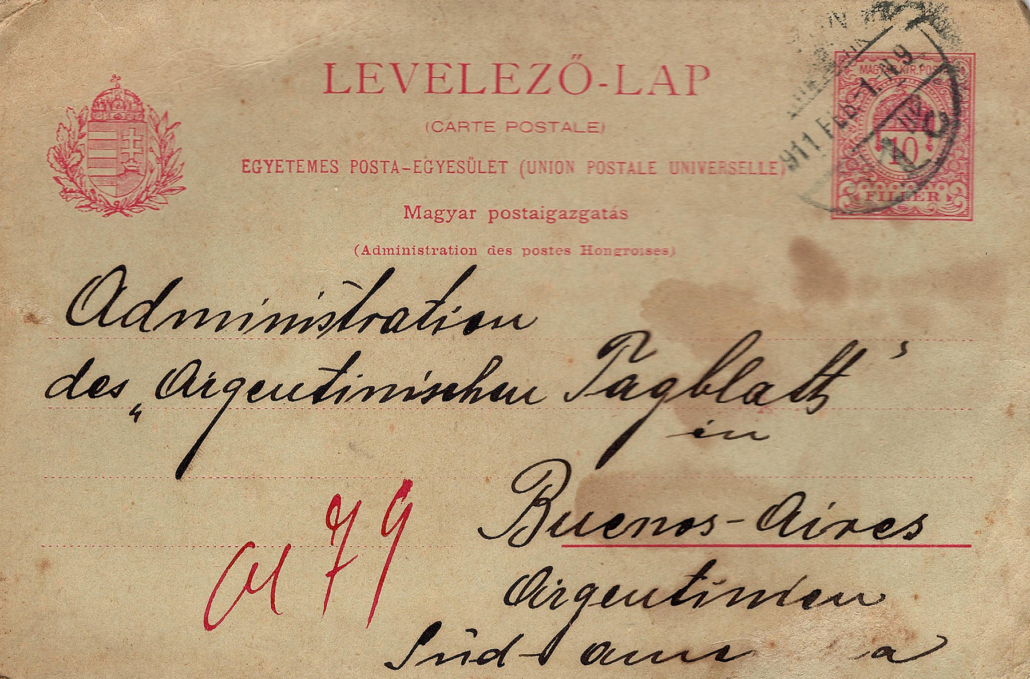 LEVELEZŐ-LAP
(CARTE POSTALE)
EGYETEMES POSTA-EGYESÜLET (UNION POSTALE UNIVERSELLE)
Magyar postaigazgatás
(Administration des postes Hongroises)
MAGY. KIR. POSTA
10
FILLÉR
911 FEB -1 N9
Administration
des „Argentinischen Tagblatt"
in
Buenos-Aires
Argentinien
Süd-
79